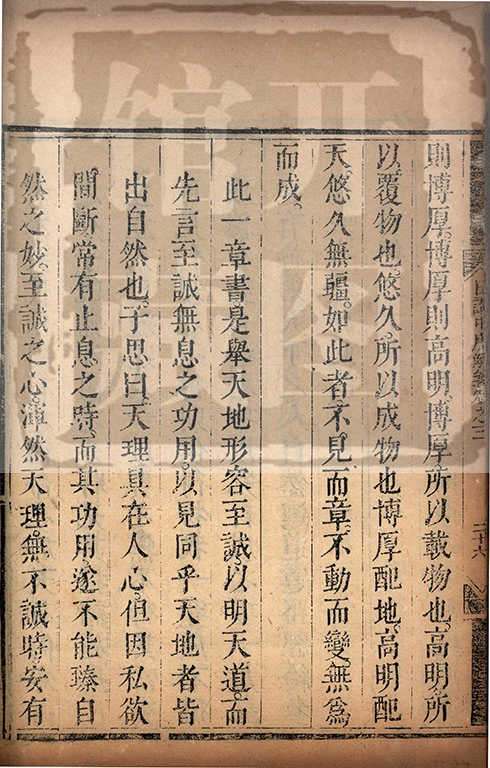 則博厚博厚則高明博厚所以載物也高明所
以覆物也悠久所以成物也博厚配地高明配
天悠久無疆如此者不見而章不動而變無為
而成
此一章書是舉天地形容至誠以明天道而
先言至誠無息之功用以見同乎天地者皆
出自然也子思曰天理具在人心但因私欲
間斷常有止息之時而其功用遂不能臻自
然之妙至誠之心渾然天理無不誠時安有
日講中庸解義卷之三
二十六